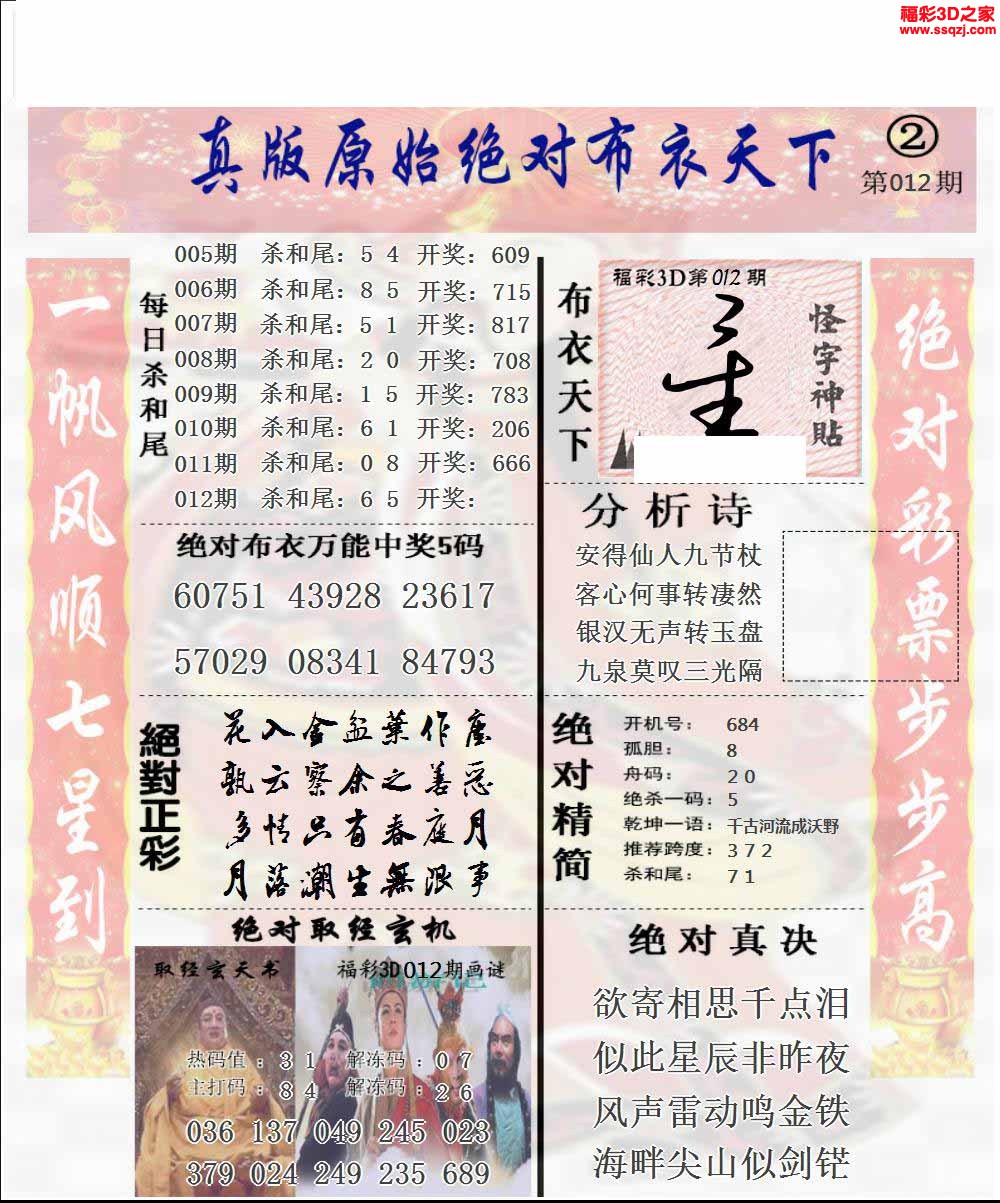 福彩3D之家
www.ssqzj.com
真版原始绝对布衣天下
②
第012期
一帆风顺七星到
每日杀和尾
005期 杀和尾：5 4 开奖：609
006期 杀和尾：8 5 开奖：715
007期 杀和尾：5 1 开奖：817
008期 杀和尾：2 0 开奖：708
009期 杀和尾：1 5 开奖：783
010期 杀和尾：6 1 开奖：206
011期 杀和尾：0 8 开奖：666
012期 杀和尾：6 5 开奖：
绝对布衣万能中奖5码
60751 43928 23617
57029 08341 84793
絕對正彩
花入金盆葉作尘
孰云察余之善恶
多情只有春庭月
月落潮生無限事
绝对取经玄机
取经玄天书
福彩3D012期画谜
热码值：3 1 解冻码：0 7
主打码：8 4 解冻码：2 6
036 137 049 245 023
379 024 249 235 689
布衣天下
福彩3D第012期
怪字神貼
分析诗
安得仙人九节杖
客心何事转凄然
银汉无声转玉盘
九泉莫叹三光隔
绝对精简
开机号： 684
孤胆： 8
舟码： 2 0
绝杀一码：5
乾坤一语：千古河流成沃野
推荐跨度：3 7 2
杀和尾： 7 1
绝对真决
欲寄相思千点泪
似此星辰非昨夜
风声雷动鸣金铁
海畔尖山似剑铓
绝对彩票步步高